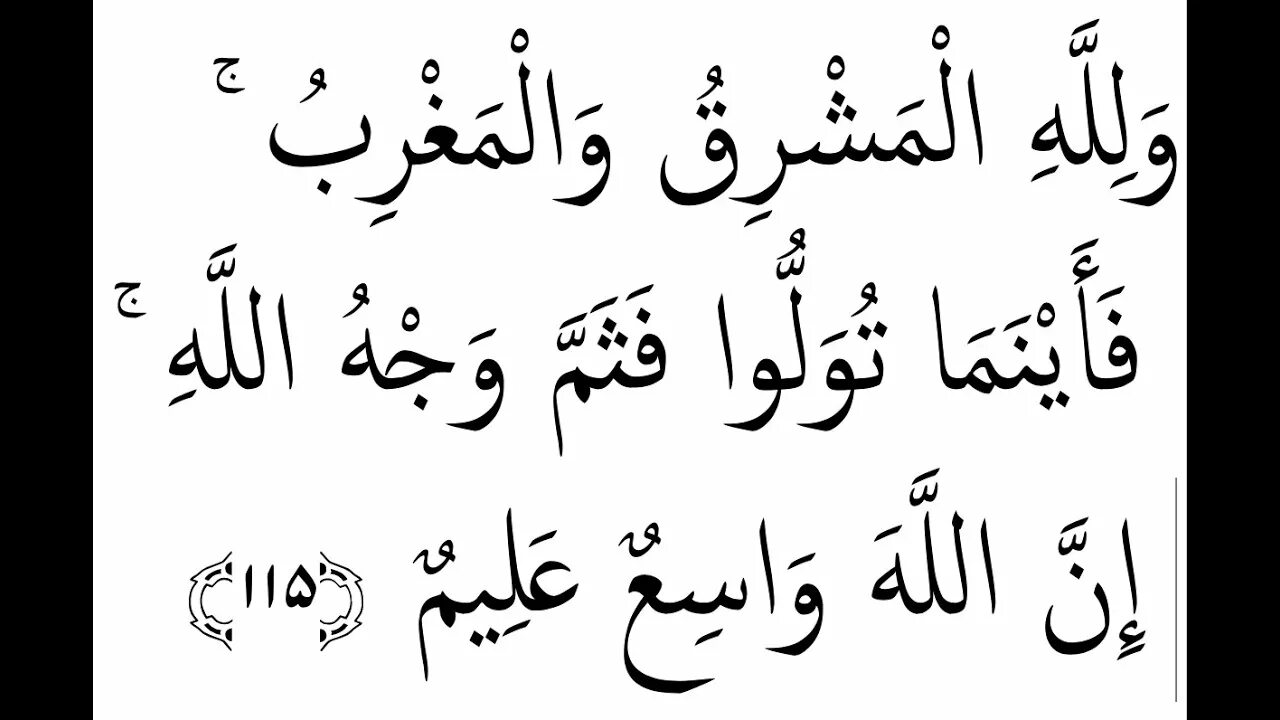 وَلِلَّهِ الْمَشْرِقُ وَالْمَغْرِبُ ۚ
فَأَيْنَمَا تُوَلُّوا فَثَمَّ وَجْهُ اللَّهِ ۚ
إِنَّ اللَّهَ وَاسِعٌ عَلِيمٌ ﴿۱۱۵﴾